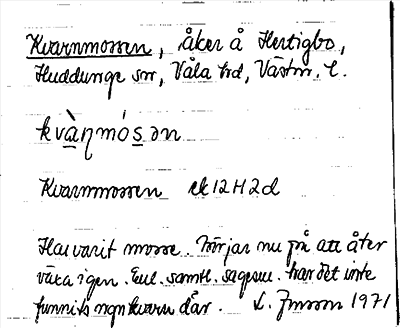 Kvarnmossen, åker å Hertigbo,
Huddunge sn, Våla hd, Västm. l.
kvàṇmósən
Kvarnmossen ek 12H2d
Har varit mosse. Börjar nu på att åter
växa igen. Enl. samtl. sagesm. har det inte
funnits ngn kvarn där. L. Jnsson 1971